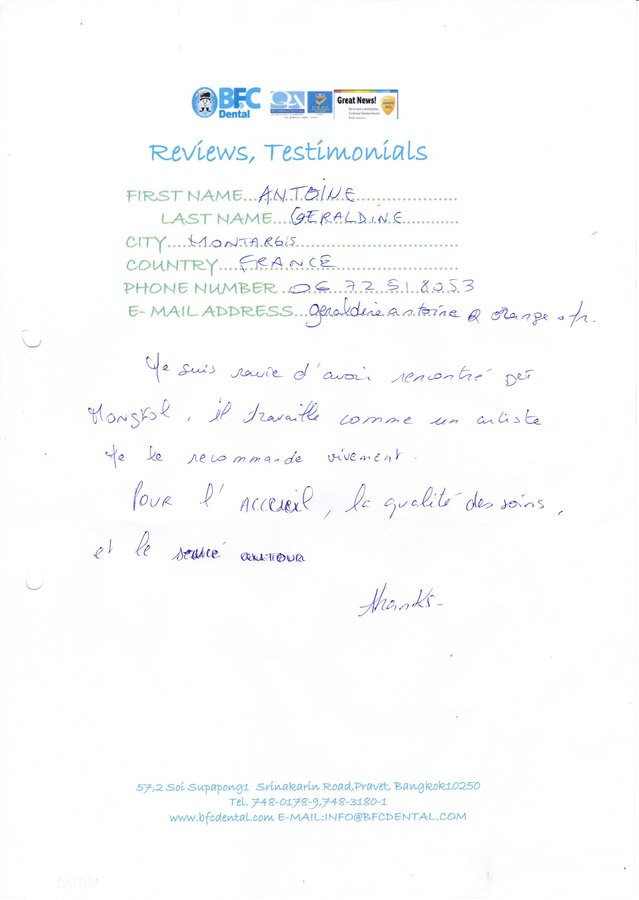 BFC
Dental
Great News!
Reviews, Testimonials
FIRST NAME...ANTOINE
LAST NAME...GERALDINE
CITY....MONTARGIS
COUNTRY...FRANCE
PHONE NUMBER...06 72 51 80 53
E-MAIL ADDRESS...geraldine antoine @ orange.fr.
Je suis ravie d'avoir rencontré
Mongkol, il travaille comme un artiste
Je le recommande vivement.
Pour l'ACCEUIL, la qualité des soins,
et le
thanks-
57,2 Soi Supapong1 Srinakarin Road,Pravet, Bangkok10250
Tel. 748-0178-9,748-3180-1
www.bfcdental.com E-MAIL:INFO@BFCDENTAL.COM